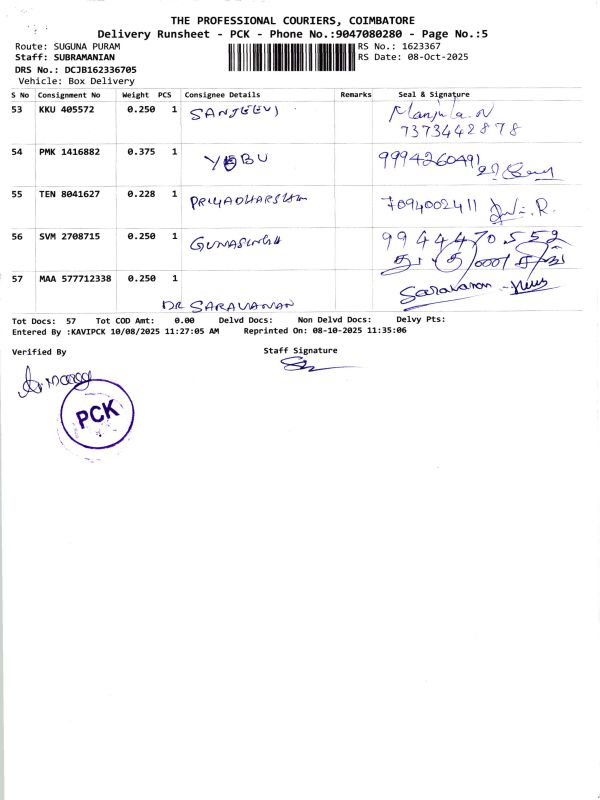 THE PROFESSIONAL COURIERS, COIMBATORE
Delivery Runsheet - PCK - Phone No.:9047080280 - Page No.:5
Route: SUGUNA PURAM RS No.: 1623367
Staff: SUBRAMANIAN RS Date: 08-Oct-2025
DRS No.: DCJB162336705
Vehicle: Box Delivery
S No Consignment No Weight PCS Consignee Details Remarks Seal & Signature
53 KKU 405572 0.250 1 SANJEEVI Manjula.N
7373442878
54 PMK 1416882 0.375 1 YOBU 9994260491
55 TEN 8041627 0.228 1 PRIYADHARSHINI 7094002411
56 SVM 2708715 0.250 1 GUNASINGH 9944470552
57 MAA 577712338 0.250 1 Saravanan
DR SARAVANAN
Tot Docs: 57 Tot COD Amt: 0.00 Delvd Docs: Non Delvd Docs: Delvy Pts:
Entered By :KAVIPCK 10/08/2025 11:27:05 AM Reprinted On: 08-10-2025 11:35:06
Verified By Staff Signature
PCK